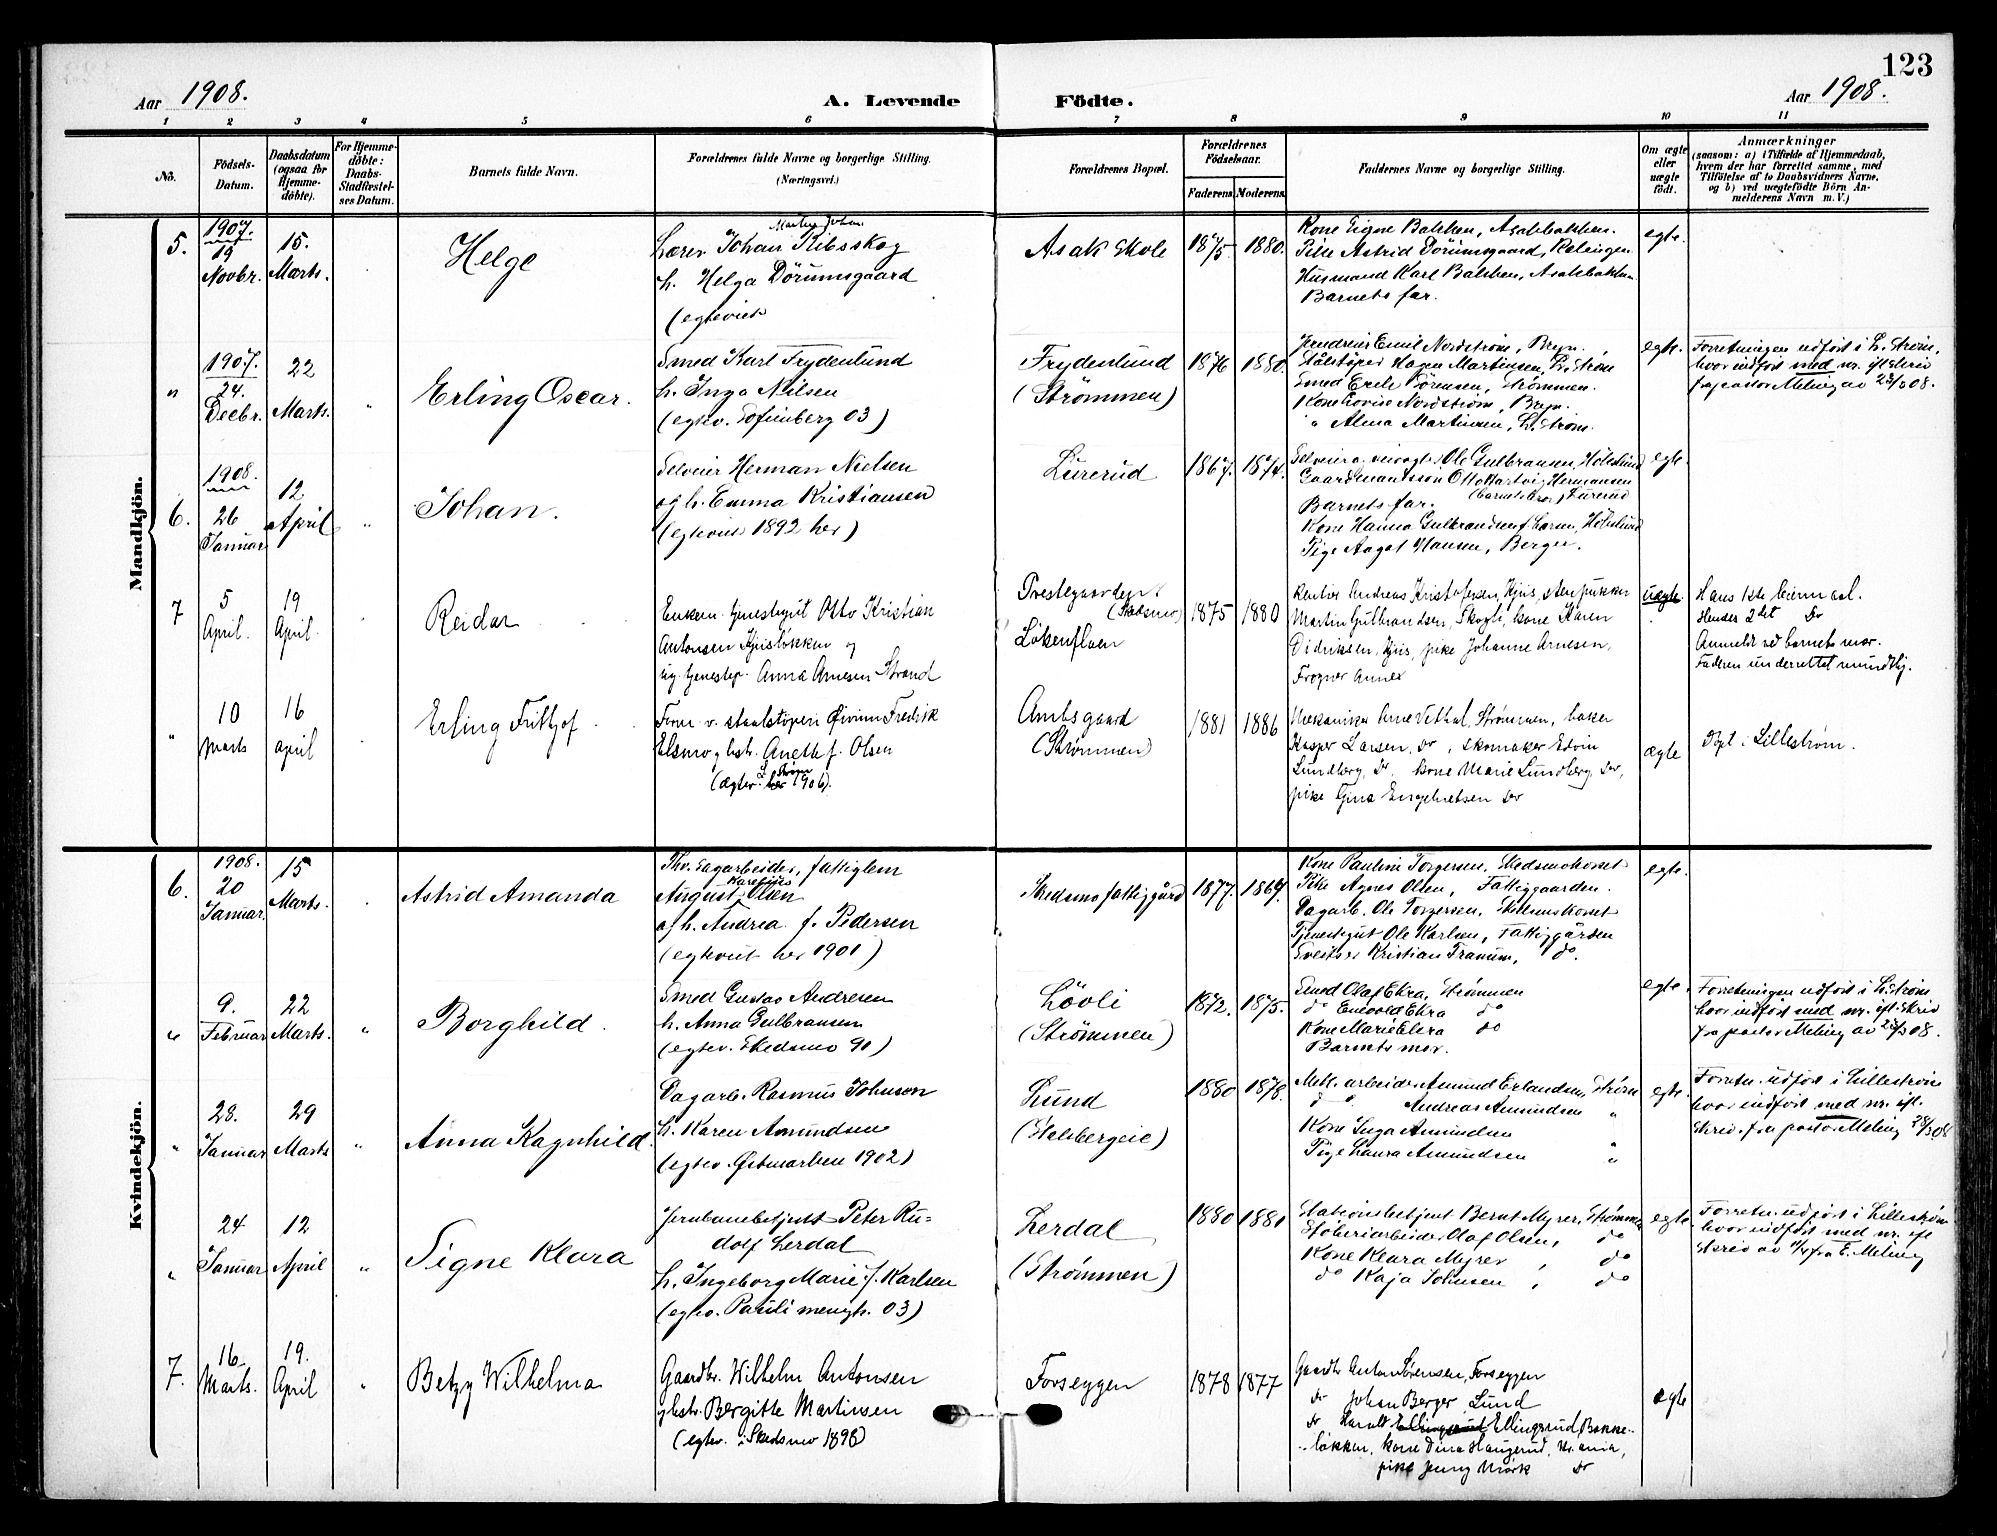 123
Aar 1908.
A. Levende Födte.
Aar 1908.
1 2 3 4 5 6 7 8 9 10 11
No.
Födsels-Datum.
Daabsdatum (ogsaa for Hjemme-döbte).
For Hjemme-döbte: Daabs-Stadfæstel-ses Datum.
Barnets fulde Navn.
Forældrenes fulde Navne og borgerlige Stilling.
(Næringsvei.)
Forældrenes Bopæl.
Forældrenes Födselsaar.
Faderens. Moderens.
Faddernes Navne og borgerlige Stilling.
Om ægte eller uægte födt.
Anmærkninger
(saasom: a) i Tilfælde af Hjemmedaab,
hvem der har forrettet samme, med
Tilföielse af to Daabsvidners Navne,
og b) ved uægtefödte Börn An-
melderens Navn m.V.)
Mandkjön.
5.
1907.
19
Novbr.
15.
Marts.
Helge
Martin Johan
Lærer Johan Ribsskog
h. Helga Dörumsgaard
(egteviet
Asak Skole
1875.
1880.
Kone Signe Bakken, Asakbakken.
Pike Astrid Dörumsgaard, Rælingen
Husmand Karl Bakken, Asakbakken
Barnets far.
egte.
"
1907.
24.
Decbr.
22
Marts.
"
Erling Oscar.
Smed Karl Frydenlund
h. Inga Nilsen
(egtev. Sofienberg 03)
Frydenlund
(Strømmen)
1876
1880.
Emil Nordstrøm, Bryn.
Stålstøper Hagen Martinsen, L.strøm
Smed Erik Sörensen, Strømmen.
Kone Lovise Nordstrøm, Bryn.
" Alma Martinsen, L.strøm.
egte.
Forretningen udført i L.strøm,
hvor indført med nr. eft skriv
fra pastor Meling av 23/3 08.
6.
1908.
26
Januar
12
April
"
Johan.
Selveier Herman Nielsen
og h. Emma Kristiansen
(egteviet 1892 her)
Lurerud
1867.
1874.
Selveier Ole Gulbransen, Holslund
Gaardmandssøn Otto Hartvig Hermansen
(barnets bror) Lurerud
Barnets far.
Kone Hanna Gulbrandsen f. Larsen, Holslund
Pige Aagot Hansen, Berger.
egte.
7
5
April.
19
April.
Reidar
Enkem. tjenestegut Otto Kristian
Antonsen Kjuisløkken og
ug. tjenestep. Anna Arnesen Strand
Prestegaarden
(Skedsmo)
Løkenflaen
1875
1880
Rentier Andreas Kristofersen, Kjuis,
Martin Gulbrandsen, Skogli, kone Karen
Didriksen, Kjuis, pike Johanne Arnesen,
Frogner Annex
uægte.
Hans 1ste leiermaal.
Hendes 2det Do
Anmeldt ved barnets mor.
Faderen underrettet mundtlig.
"
10
Marts
16
april
Erling Frithjof
Form. v. staalstøperi Øivinn Fredrik
Elsmo og hstr. Anette f. Olsen
L.strøm
(ægtev. her 1906).
Ambsgaard
(Strømmen)
1881
1886
Mekaniker Arne Vethal, Strømmen, baker
Kasper Larsen, do, skomaker Edvin
Lundberg, do. kone Marie Lundberg, do,
pike Gina Engebretsen do
ægte
Døpt i Lillestrøm.
Kvindekjön.
6.
1908.
20
Januar.
15
Marts.
Astrid Amanda
Fhv. Dagarbeider, fattiglem
Karelius
August Olsen
og h. Andrea f. Pedersen
(egteviet her 1901)
Skedsmo fattiggård
1877.
1869.
Kone Pauline Torgersen, Skedsmokorset
Pike Agnes Olsen, Fattiggaarden.
Dagarb. Ole Torgersen, Skedsmokorset
Tjenestegut Ole Karlsen, Fattiggården
Kristian Tranum, do.
egte.
"
9.
Februar
22
Marts.
"
Borghild.
Smed Gustav Andresen
h. Anna Gulbransen
(egtev. Skedsmo 91)
Lövli
(Strømmen)
1872.
1875.
Smed Olaf Ekra, Strømmen
do Enevold Ekra do
Kone Marie Ekra do
Barnets mor.
egte.
Forretningen udført i L.strøm
hvor indført med nr. eft. skriv
fra pastor Meling av 23/3 08.
"
28.
Januar
29
Marts
"
Anna Ragnhild.
Dagarb. Rasmus Johnson
h. Karen Amundsen
(egtev. Østmarken 1902)
Lund
(Stalsbergeie)
1880
1878.
Mek. arbeider Amund Erlandsen, Strøm
do " Andreas Amundsen "
Kone Inga Amundsen "
Pige Laura Amundsen "
egte.
Forretn. udført i Lillestrøm
hvor indført med nr. eft.
skriv. fra pastor Meling 28/3 08
"
24
Januar
12
April
"
Signe Klara
Jernbanebetjent Peter Ru-
dolf Lerdal
h. Ingeborg Marie f. Karlsen
(egtev. Pauli menigh. 03)
Lerdal
(Strømmen)
1880
1881
Stationsbetjent Bernt Myrer, Strømmen
Støberiarbeider Olaf Olsen, do
Kone Klara Myrer, do
do Kaja Johnsen, do
egte
Forretn. udført i Lillestrøm
hvor indført med nr. eft
skriv av fra E. Meling
7.
16
Marts.
19.
April
"
Betzy Wilhelma
Gaardbr. Wilhelm Antonsen
og hstr. Bergitte Martinsen
(egtev. i Skedsmo 1898)
Forseggen
1878
1877
Gaardbr Anton Sørensen, Forseggen
do Johan Berger Lund
do Harald Ellingsrud Bakke-
løkken, kone Dina Haugerud, Kr.ania,
pike Jenny Mørk do
ægte